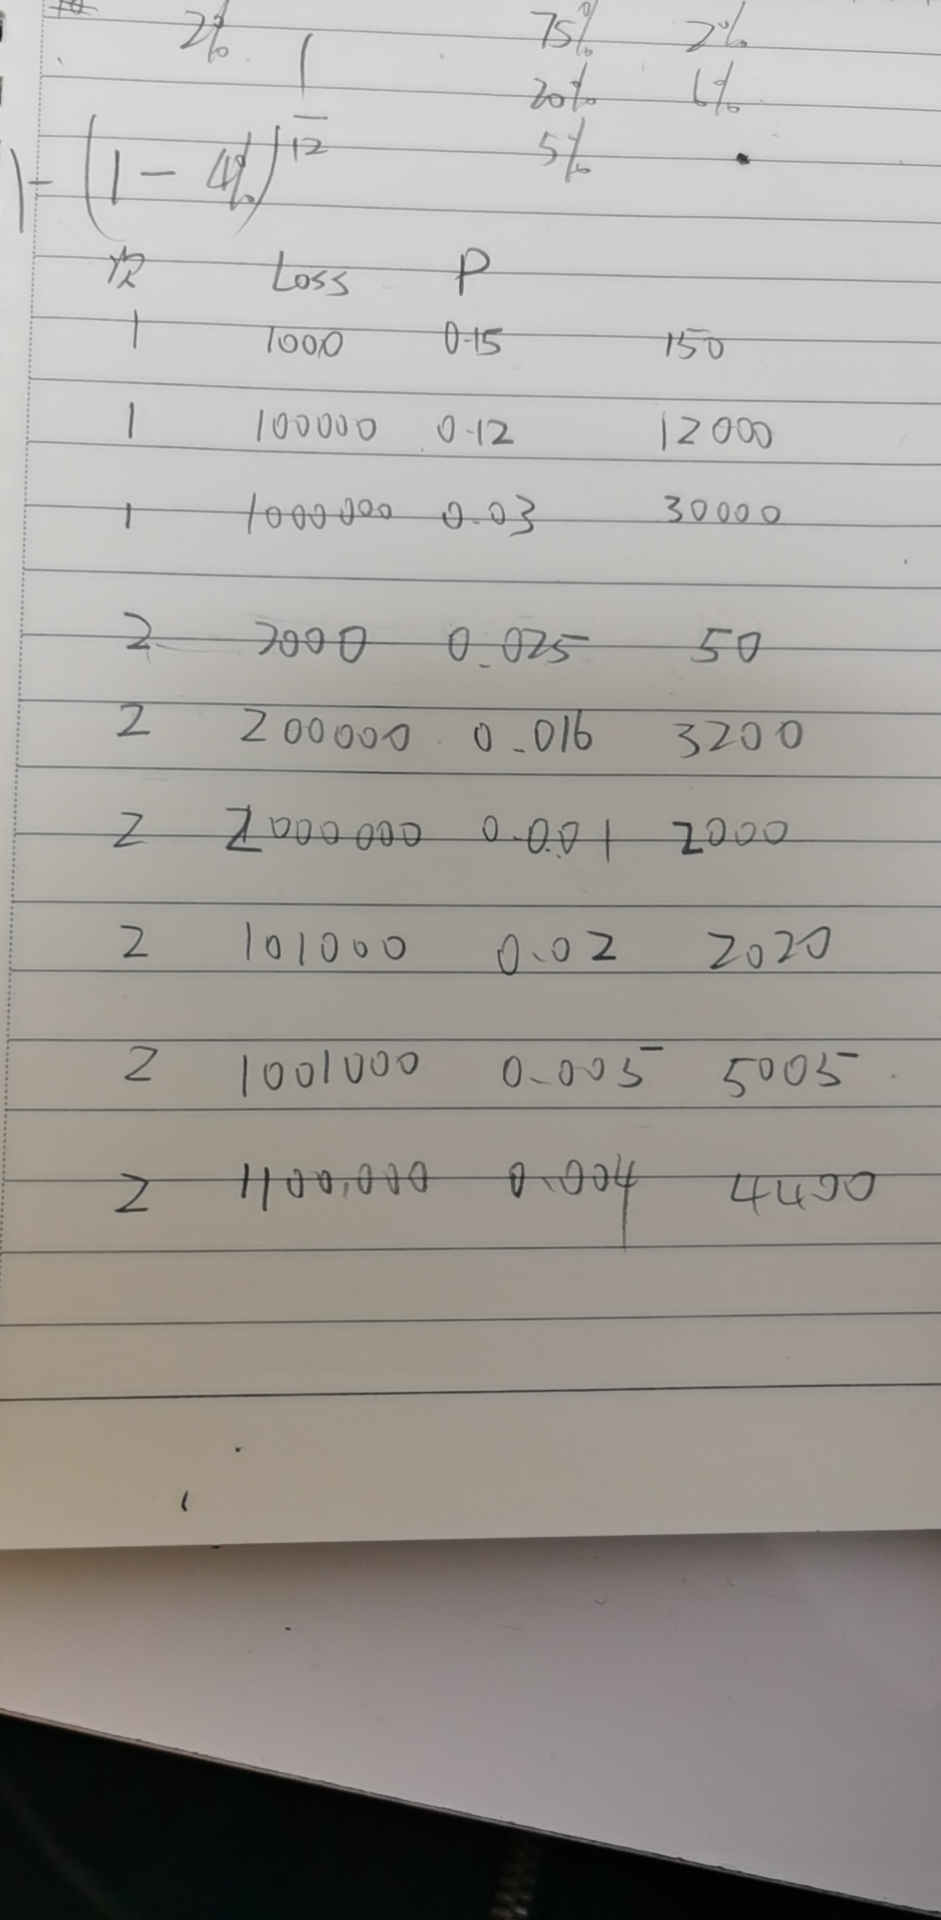 2% 75% 2%
20% 6%
1-(1-4%)^1/12 5%
次 Loss P
1 1000 0.15 150
1 100000 0.12 12000
1 1000000 0.03 30000
2 2000 0.025 50
2 200000 0.016 3200
2 2000000 0.001 2000
2 101000 0.02 2020
2 1001000 0.005 5005
2 1100,000 0.004 4400